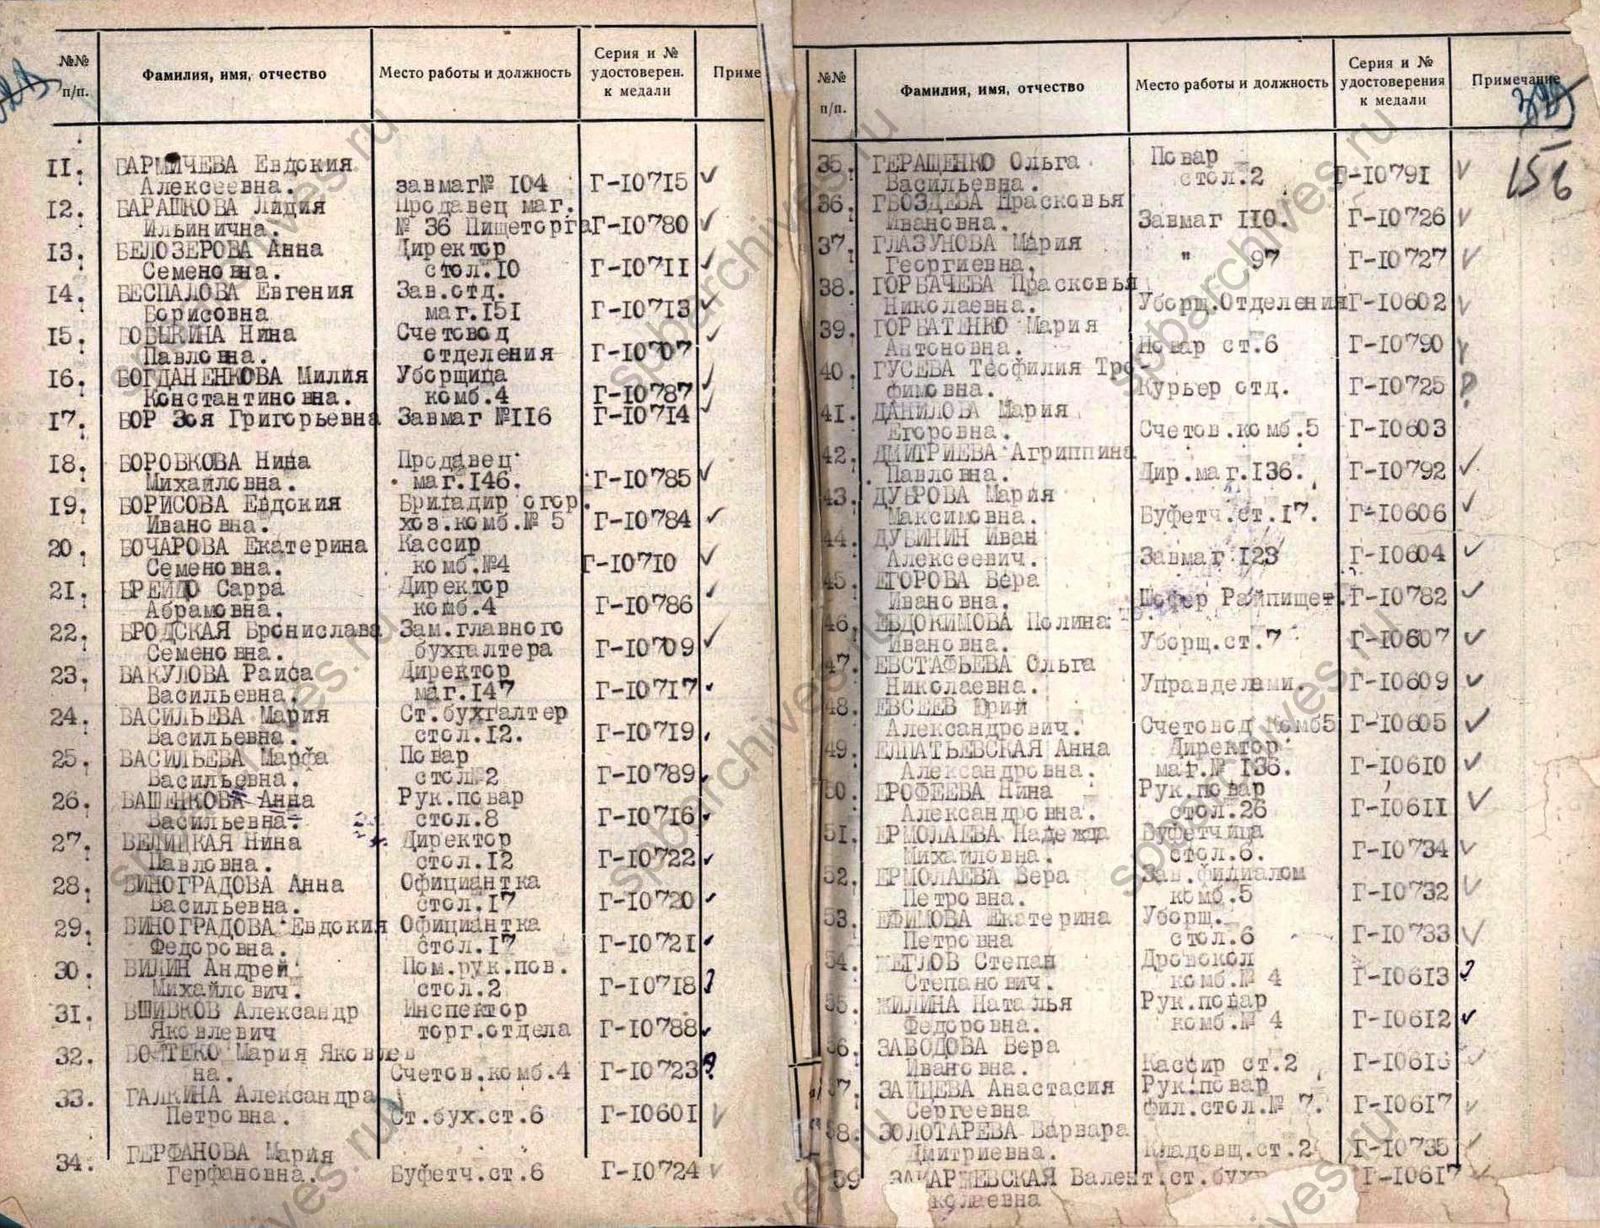 №№ п/п. Фамилия, имя, отчество Место работы и должность Серия и № удостоверен. к медали Приме
11. БАРМИЧЕВА Евдокия
Алексеевна. завмаг№ 104 Г-10715
12. БАРАШКОВА Лидия Продавец маг.
Ильинична. № 36 Пищеторга Г-10780
13. БЕЛОЗЕРОВА Анна Директор
Семеновна. стол.10 Г-10711
14. БЕСПАЛОВА Евгения Зав.отд.
Борисовна маг.151 Г-10713
15. БОБЫКИНА Нина Счетовод
Павловна. отделения Г-10707
16. БОГДАНЕНКОВА Милия Уборщица
Константиновна. комб.4 Г-10787
17. БОР Зоя Григорьевна Завмаг №116 Г-10714
18. БОРОВКОВА Нина Продавец
Михайловна. маг.146. Г-10785
19. БОРИСОВА Евдокия Бригадир огор.
Ивановна. хоз.комб.№ 5 Г-10784
20. БОЧАРОВА Екатерина Кассир
Семеновна. комб.№4 Г-10710
21. БРЕЙДО Сарра Директор
Абрамовна. комб.4 Г-10786
22. БРОДСКАЯ Бронислава Зам.главного
Семеновна. бухгалтера Г-10709
23. ВАКУЛОВА Раиса Директор
Васильевна. маг.147 Г-10717
24. ВАСИЛЬЕВА Мария Ст.бухгалтер
Васильевна. стол.12. Г-10719
25. ВАСИЛЬЕВА Марфа Повар
Васильевна. стол№2 Г-10789
26. ВАШЕНКОВА Анна Рук.повар
Васильевна. стол.8 Г-10716
27. ВЕЛИЦКАЯ Нина Директор
Павловна. стол.12 Г-10722
28. ВИНОГРАДОВА Анна Официантка
Васильевна. стол.17 Г-10720
29. ВИНОГРАДОВА Евдокия Официантка
Федоровна. стол.17 Г-10721
30. ВИЛИН Андрей Пом.рук.пов.
Михайлович. стол.2 Г-10718
31. ВШИВКОВ Александр Инспектор
Яковлевич торг.отдела Г-10788
32. ВОЙТЕКО Мария Яковлев
на. Счетов.комб.4 Г-10723
33. ГАЛКИНА Александра
Петровна. Ст.бух.ст.6 Г-10601
34. ГЕРФАНОВА Мария
Герфановна. Буфетч.ст.6 Г-10724
№№ п/п. Фамилия, имя, отчество Место работы и должность Серия и № удостоверения к медали Примечание
156
35. ГЕРАЩЕНКО Ольга Повар
Васильевна. стол.2 Г-10791
36. ГВОЗДЕВА Прасковья
Ивановна. Завмаг 110. Г-10726
37. ГЛАЗУНОВА Мария
Георгиевна. " 97 Г-10727
38. ГОРБАЧЕВА Прасковья
Николаевна. Уборщ.Отделения Г-10602
39. ГОРБАТЕНКО Мария
Антоновна. Повар ст.6 Г-10790
40. ГУСЕВА Теофилия Тро-
фимовна. Курьер отд. Г-10725 ?
41. ДАНИЛОВА Мария
Егоровна. Счетов.комб.5 Г-10603
42. ДМИТРИЕВА Агриппина
Павловна. Дир.маг.136. Г-10792
43. ДУБРОВА Мария
Максимовна. Буфетч.ст.17. Г-10606
44. ДУБИНИН Иван
Алексеевич. Завмаг 123 Г-10604
45. ЕГОРОВА Вера
Ивановна. Шофер Райпищет. Г-10782
46. ЕВДОКИМОВА Полина
Ивановна. Уборщ.ст.7 Г-10607
47. ЕВСТАФЬЕВА Ольга
Николаевна. Управделами. Г-10609
48. ЕВСЕЕВ Юрий
Александрович. Счетовод комб5 Г-10605
49. ЕЛПАТЬЕВСКАЯ Анна Директор
Александровна. маг.№ 136. Г-10610
50. ЕРОФЕЕВА Нина Рук.повар
Александровна. стол.26 Г-10611
51. ЕРМОЛАЕВА Надежда Буфетчица
Михайловна. стол.6. Г-10734
52. ЕРМОЛАЕВА Вера Зав.филиалом
Петровна. комб.5 Г-10732
53. ЕФИМОВА Екатерина Уборщ.
Петровна стол.6 Г-10733
54. ЖЕГЛОВ Степан Дровокол
Степанович. комб.№ 4 Г-10613
55. ЖИЛИНА Наталья Рук.повар
Федоровна. комб.№ 4 Г-10612
56. ЗАВОДОВА Вера
Ивановна. Кассир ст.2
57. ЗАЙЦЕВА Анастасия Рук.повар
Сергеевна фил.стол.№ 7. Г-10617
58. ЗОЛОТАРЕВА Варвара
Дмитриевна. Кладовщ.ст.2 Г-10735
59 Валент.ст.бух Г-10617
колаевна
spbarchives.ru